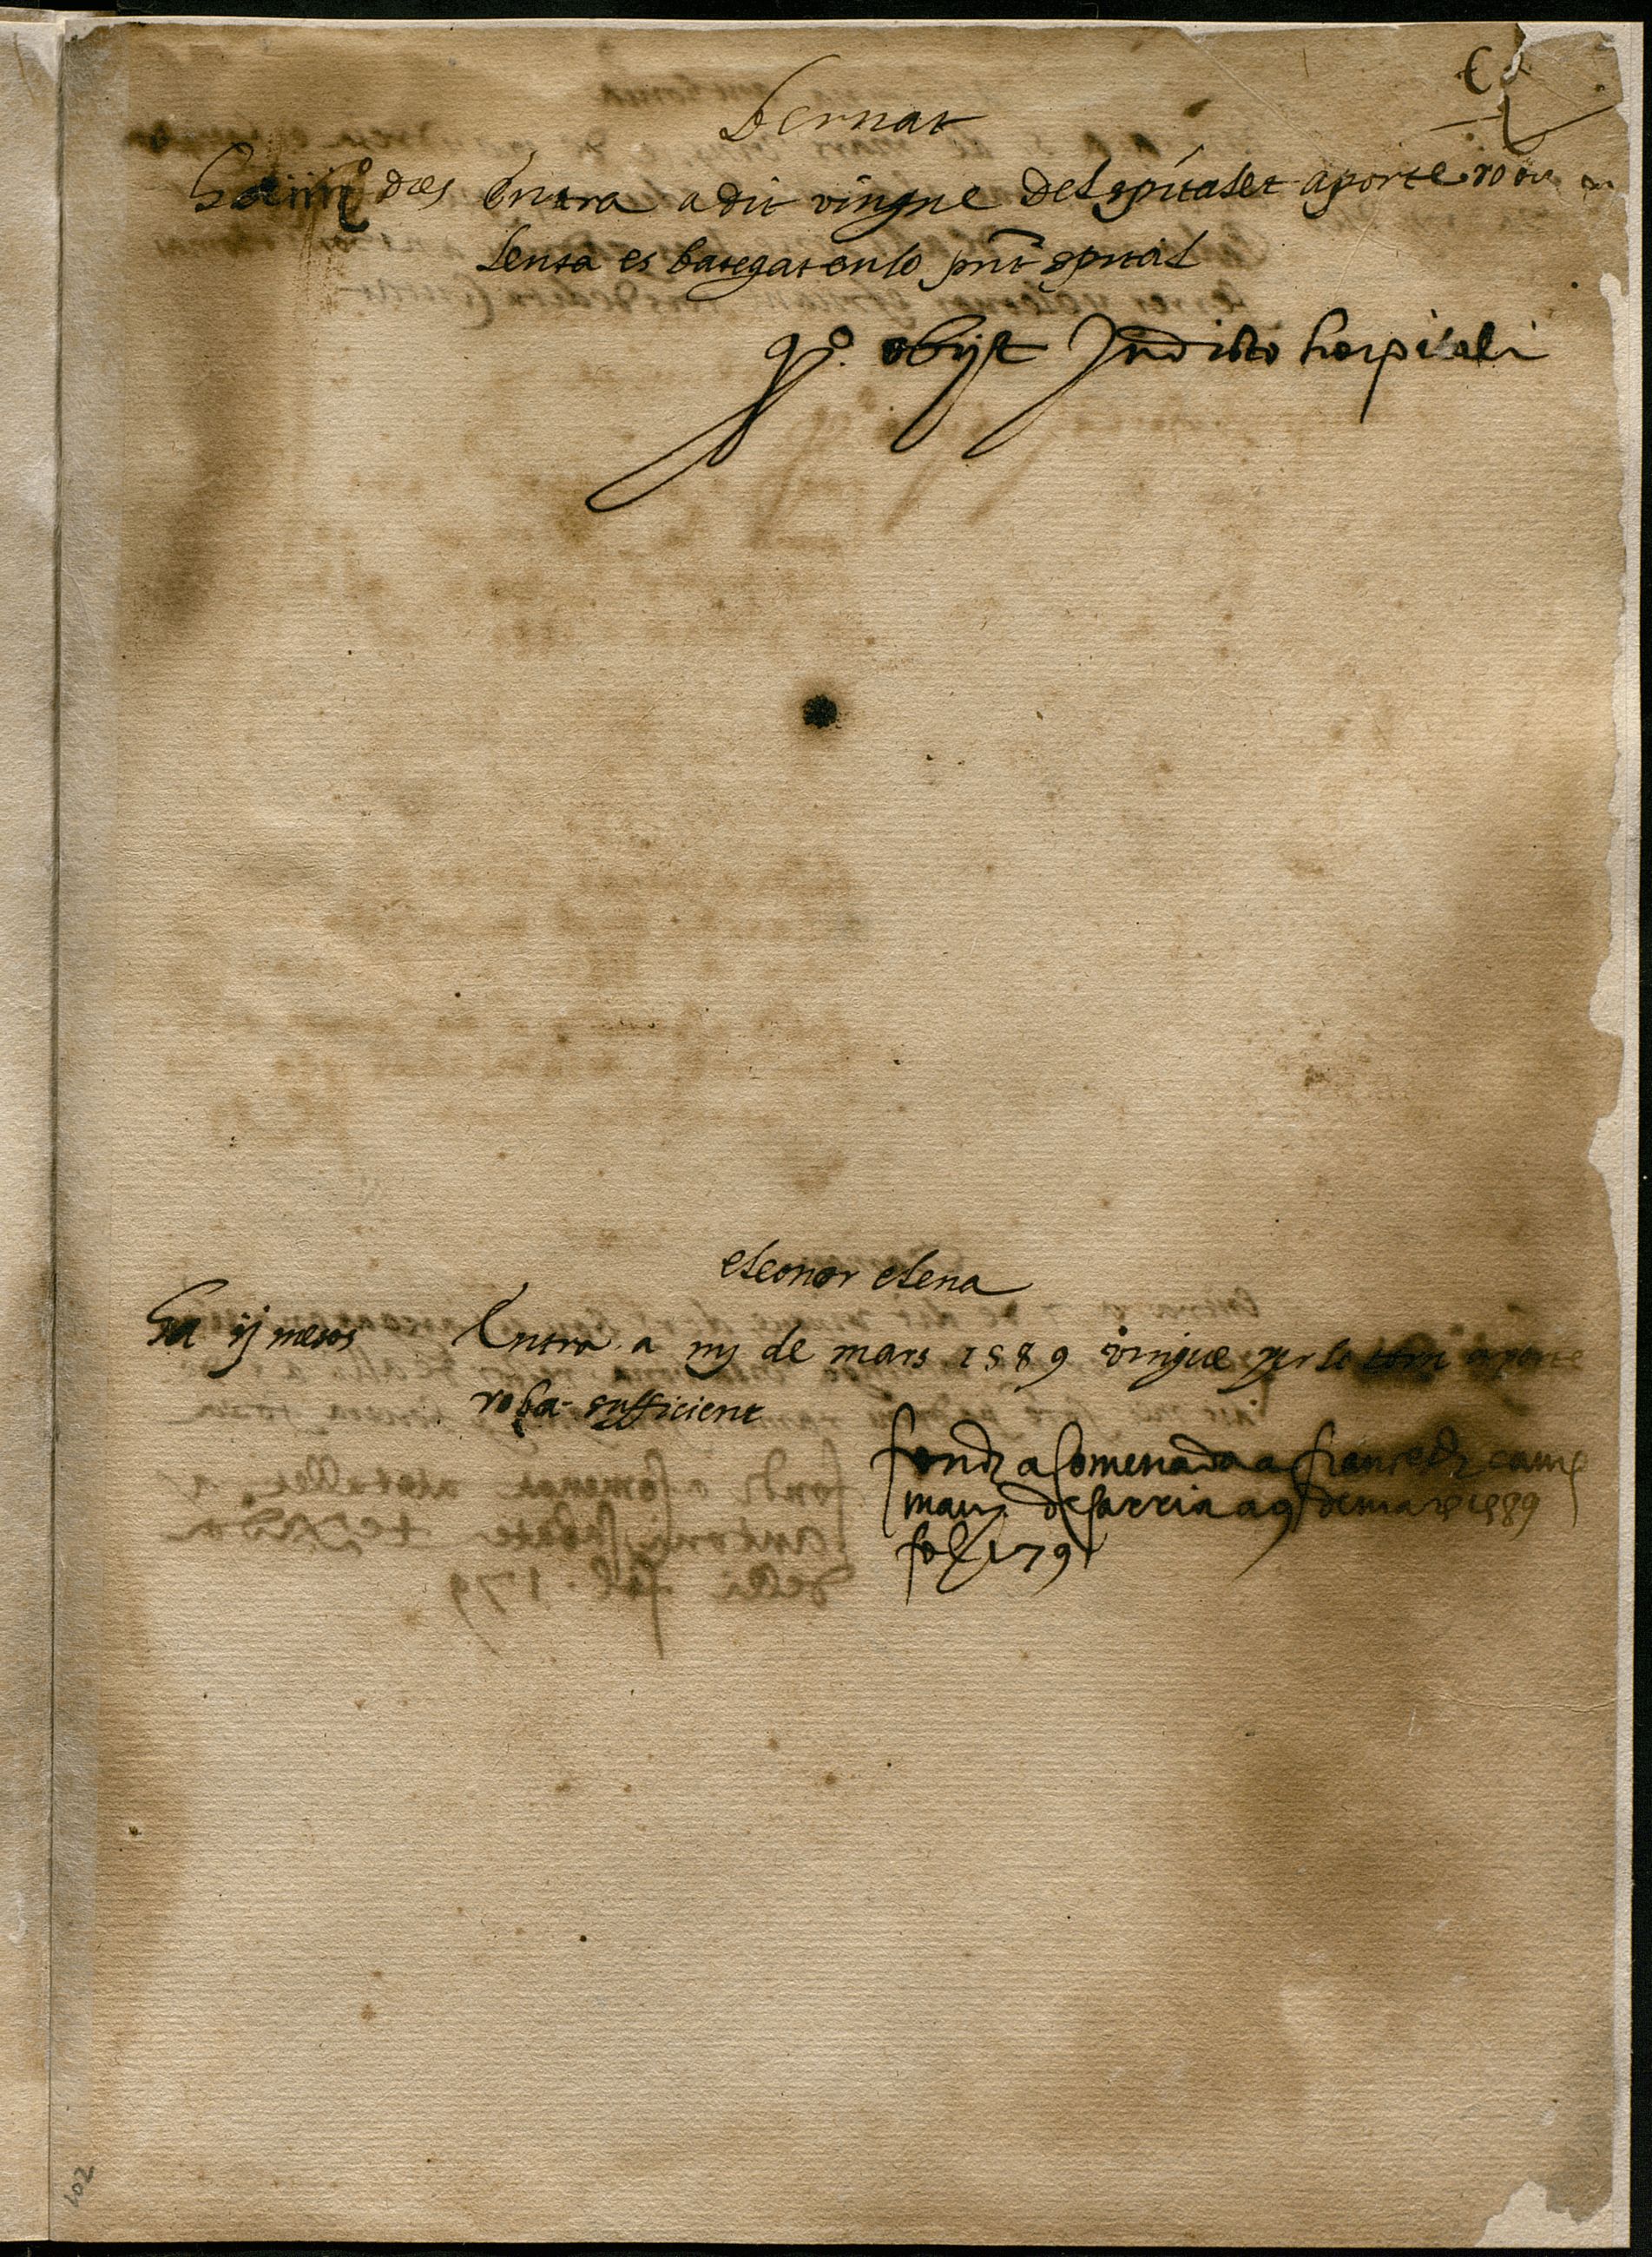 Bernat
Ha iiij dies Entra a dit vingue del spitalet aporte
dolenta es bategat en lo pnt spital
q°. obijt In dicto hospitali
eleonor elena
Ha ij mesos Entra a iiij de mars 1589 vingue per lo torn aporte
roba sufficient
fonch a comenada a francesch camp
many de sarria a 9 de mars 1589
fol 179
102